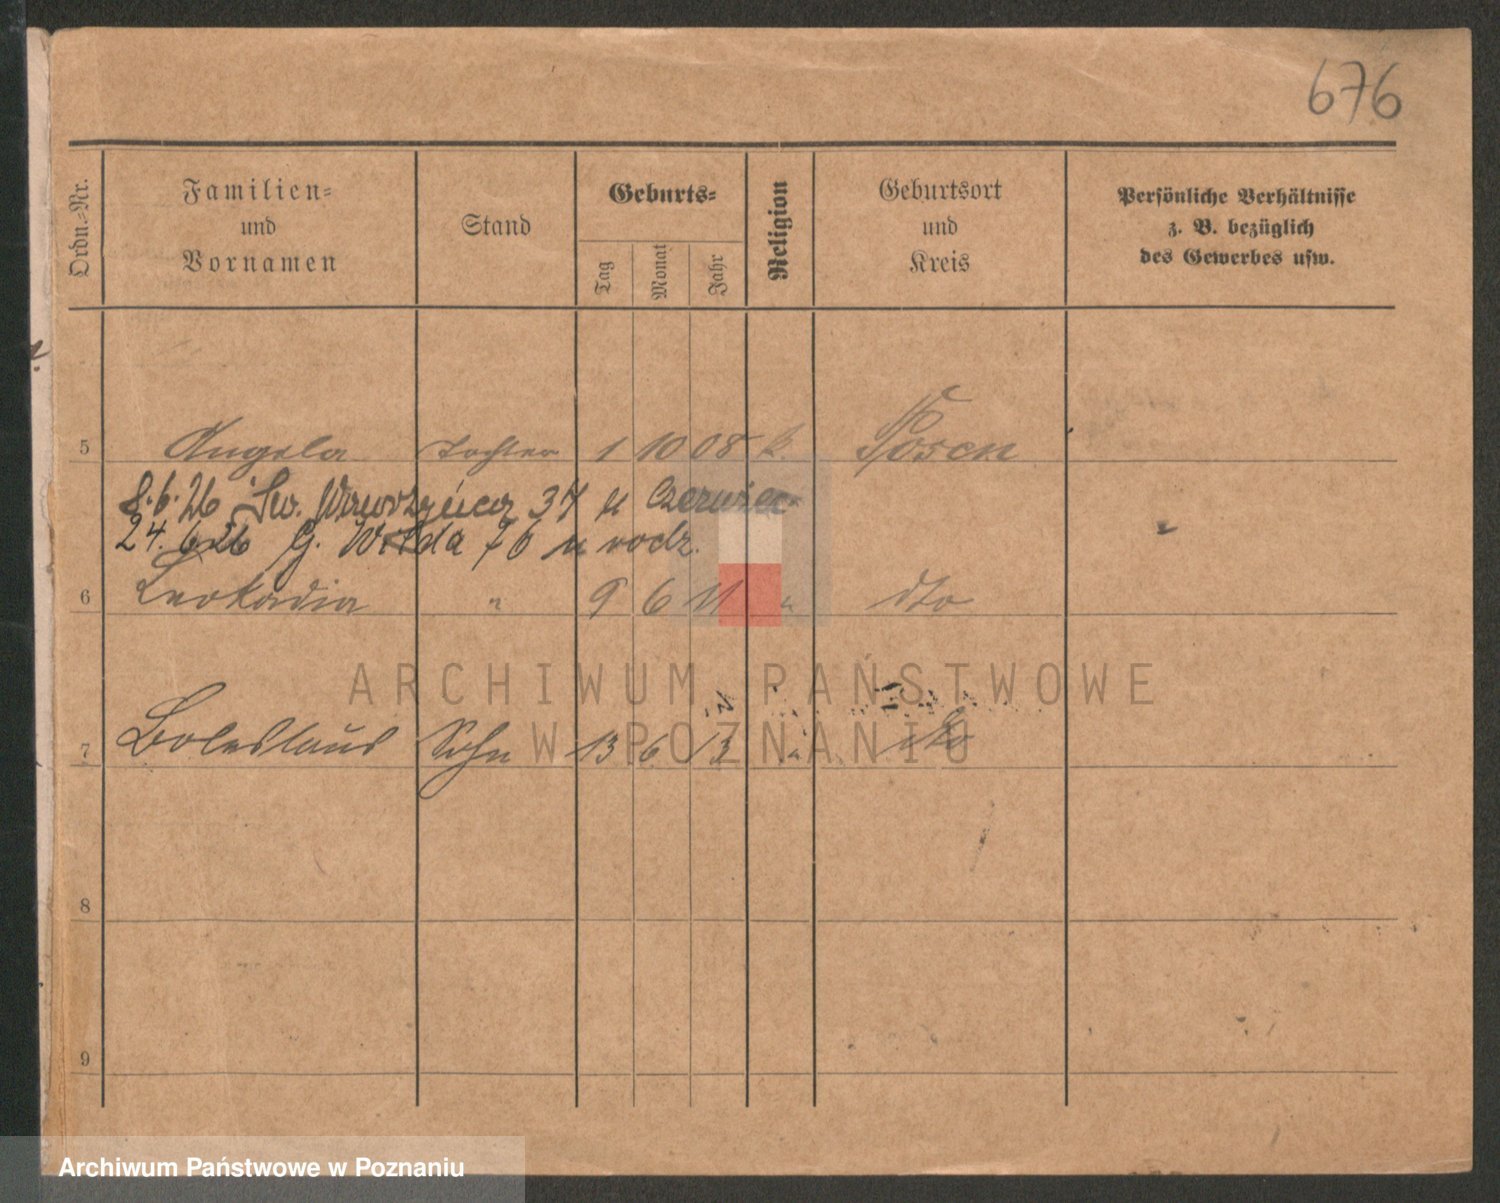 676
Ordn.-Nr.
Familien-
und
Vornamen
Stand
Geburts-
Tag
Monat
Jahr
Religion
Geburtsort
und
Kreis
Persönliche Verhältnisse
z. B. bezüglich
des Gewerbes usw.
5 Angela Tochter 1 10 08 k. Posen
8.6.26 Św. Wawrzyńca 37 u Czerwiec
24.6.26 G. Wilda 76 u rodz.
6 Leokadia " 9 6 11 " dto
ARCHIWUM PAŃSTWOWE
W POZNANIU
7 Boleslaus Sohn 13 6 13 " dto
8
9
Archiwum Państwowe w Poznaniu